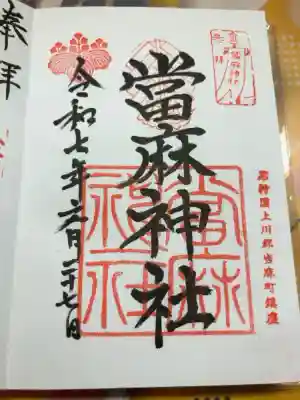 石狩國上川郡当麻町鎮座
當麻神社
當麻
神社
令和七年六月二十七日
奉拝